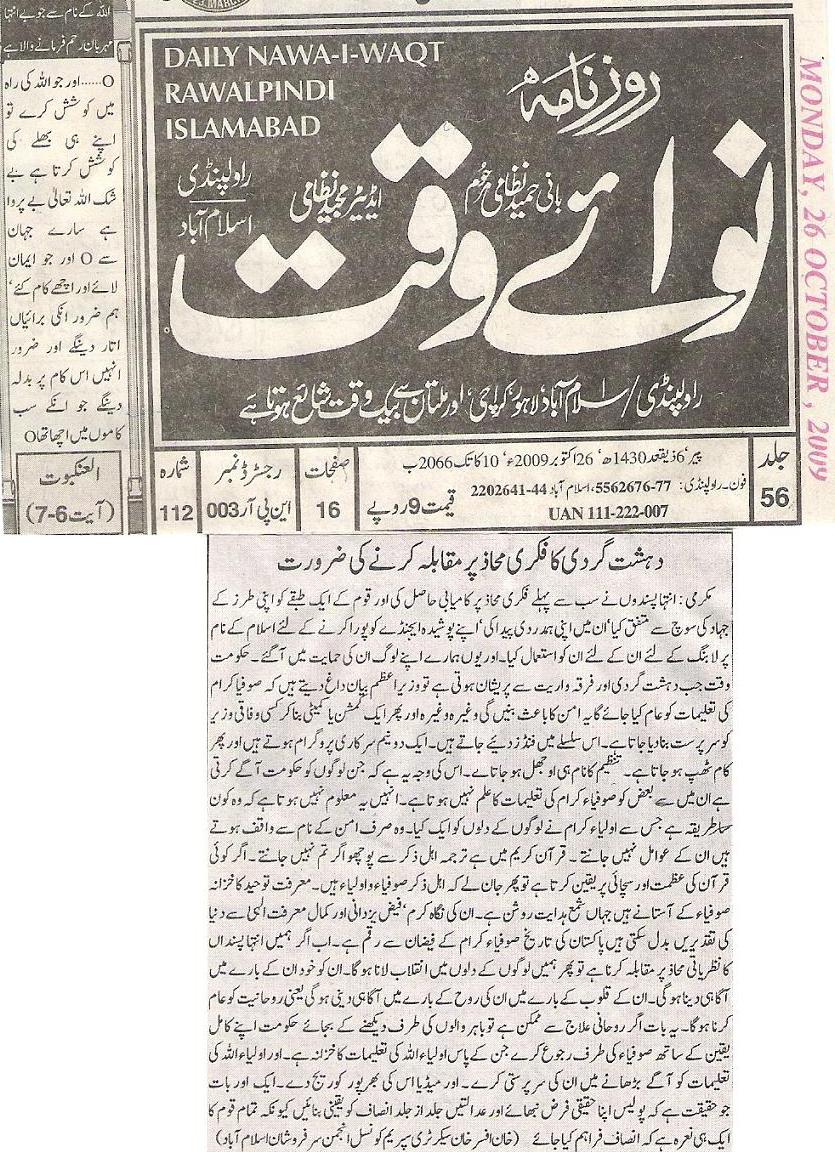 اللہ کے نام سے جو بے انتہا
مہربان رحم فرمانے والا ہے
O......اور جو اللہ کی راہ
میں کوشش کرے تو
اپنے ہی بھلے کی
کوشش کرتا ہے بے
شک اللہ تعالیٰ بے پروا
ہے سارے جہان
سے O اور جو ایمان
لائے اور اچھے کام کئے‘
ہم ضرور انکی برائیاں
اتار دینگے اور ضرور
انہیں اس کام پر بدلہ
دینگے جو انکے سب
کاموں میں اچھا تھا O
العنکبوت
(آیت 6-7)
DAILY NAWA-I-WAQT
RAWALPINDI
ISLAMABAD
روزنامہ
نوائے وقت
بانی حمید نظامی مرحوم
ایڈیٹر مجید نظامی
راولپنڈی
اسلام آباد
راولپنڈی/اسلام آباد‘ لاہور‘ کراچی‘ اور ملتان سے بیک وقت شائع ہوتا ہے
MONDAY, 26 OCTOBER, 2009
جلد
56
پیر‘ 6 ذیقعد 1430ھ‘ 26 اکتوبر 2009ء‘ 10 کاتک 2066 ب
فون۔راولپنڈی: 77-5562676، اسلام آباد 44-2202641
UAN 111-222-007
قیمت 9 روپے
صفحات
16
رجسٹرڈ نمبر
این پی آر 003
شمارہ
112
دہشت گردی کا فکری محاذ پر مقابلہ کرنے کی ضرورت
مکرمی: انتہا پسندوں نے سب سے پہلے فکری محاذ پر کامیابی حاصل کی اور قوم کے ایک طبقے کو اپنی طرز کے
جہاد کی سوچ سے متفق کیا‘ ان میں اپنی ہمدردی پیدا کی‘ اپنے پوشیدہ ایجنڈے کو پورا کرنے کے لئے اسلام کے نام
پر لابنگ کے لئے ان کے لئے ان کو استعمال کیا۔ اور یوں ہمارے اپنے لوگ ان کی حمایت میں آ گئے۔ حکومت
وقت جب دہشت گردی اور فرقہ واریت سے پریشان ہوتی ہے تو وزیراعظم بیان داغ دیتے ہیں کہ صوفیا کرام
کی تعلیمات کو عام کیا جائے گا یہ امن کا باعث بنیں گی وغیرہ وغیرہ اور پھر ایک کمشن یا کمیٹی بنا کر کسی وفاقی وزیر
کو سرپرست بنا دیا جاتا ہے۔ اس سلسلے میں فنڈز دئیے جاتے ہیں۔ ایک دو نیم سرکاری پروگرام ہوتے ہیں اور پھر
کام ٹھپ ہو جاتا ہے۔ تنظیم کا نام ہی اوجھل ہو جاتا ہے۔ اس کی وجہ یہ ہے کہ جن لوگوں کو حکومت آگے کرتی
ہے ان میں سے بعض کو صوفیاء کرام کی تعلیمات کا علم نہیں ہوتا ہے۔ انہیں یہ معلوم نہیں ہوتا ہے کہ وہ کون
سا طریقہ ہے جس سے اولیاء کرام نے لوگوں کے دلوں کو ایک کیا۔ وہ صرف امن کے نام سے واقف ہوتے
ہیں ان کے عوامل نہیں جانتے۔ قرآن کریم میں ہے ترجمہ اہل ذکر سے پوچھو اگر تم نہیں جانتے۔ اگر کوئی
قرآن کی عظمت اور سچائی پر یقین کرتا ہے تو پھر جان لے کہ اہل ذکر صوفیاء و اولیاء ہیں۔ معرفت توحید کا خزانہ
صوفیاء کے آستانے ہیں جہاں شمع ہدایت روشن ہے۔ ان کی نگاہ کرم‘ فیض یزدانی اور کمال معرفت الٰہی سے دنیا
کی تقدیریں بدل سکتی ہیں پاکستان کی تاریخ صوفیاء کرام کے فیضان سے رقم ہے۔ اب اگر ہمیں انتہا پسنداں
کا نظریاتی محاذ پر مقابلہ کرنا ہے تو پھر ہمیں لوگوں کے دلوں میں انقلاب لانا ہوگا۔ ان کو خود ان کے بارے میں
آگاہی دینا ہوگی۔ ان کے قلوب کے بارے میں ان کی روح کے بارے میں آگاہی دینی ہوگی یعنی روحانیت کو عام
کرنا ہوگا۔ یہ بات اگر روحانی علاج سے ممکن ہے تو باہر والوں کی طرف دیکھنے کے بجائے حکومت اپنے کامل
یقین کے ساتھ صوفیاء کی طرف رجوع کرے جن کے پاس اولیاء اللہ کی تعلیمات کا خزانہ ہے۔ اور اولیاء اللہ کی
تعلیمات کو آگے بڑھانے میں ان کی سرپرستی کرے۔ اور میڈیا اس کی بھرپور کوریج دے۔ ایک اور بات
جو حقیقت ہے کہ پولیس اپنا حقیقی فرض نبھائے اور عدالتیں جلد از جلد انصاف کو یقینی بنائیں کیونکہ تمام قوم کا
ایک ہی نعرہ ہے کہ انصاف فراہم کیا جائے (خان افسر خان سیکرٹری سپریم کونسل انجمن سرفروشان اسلام آباد)